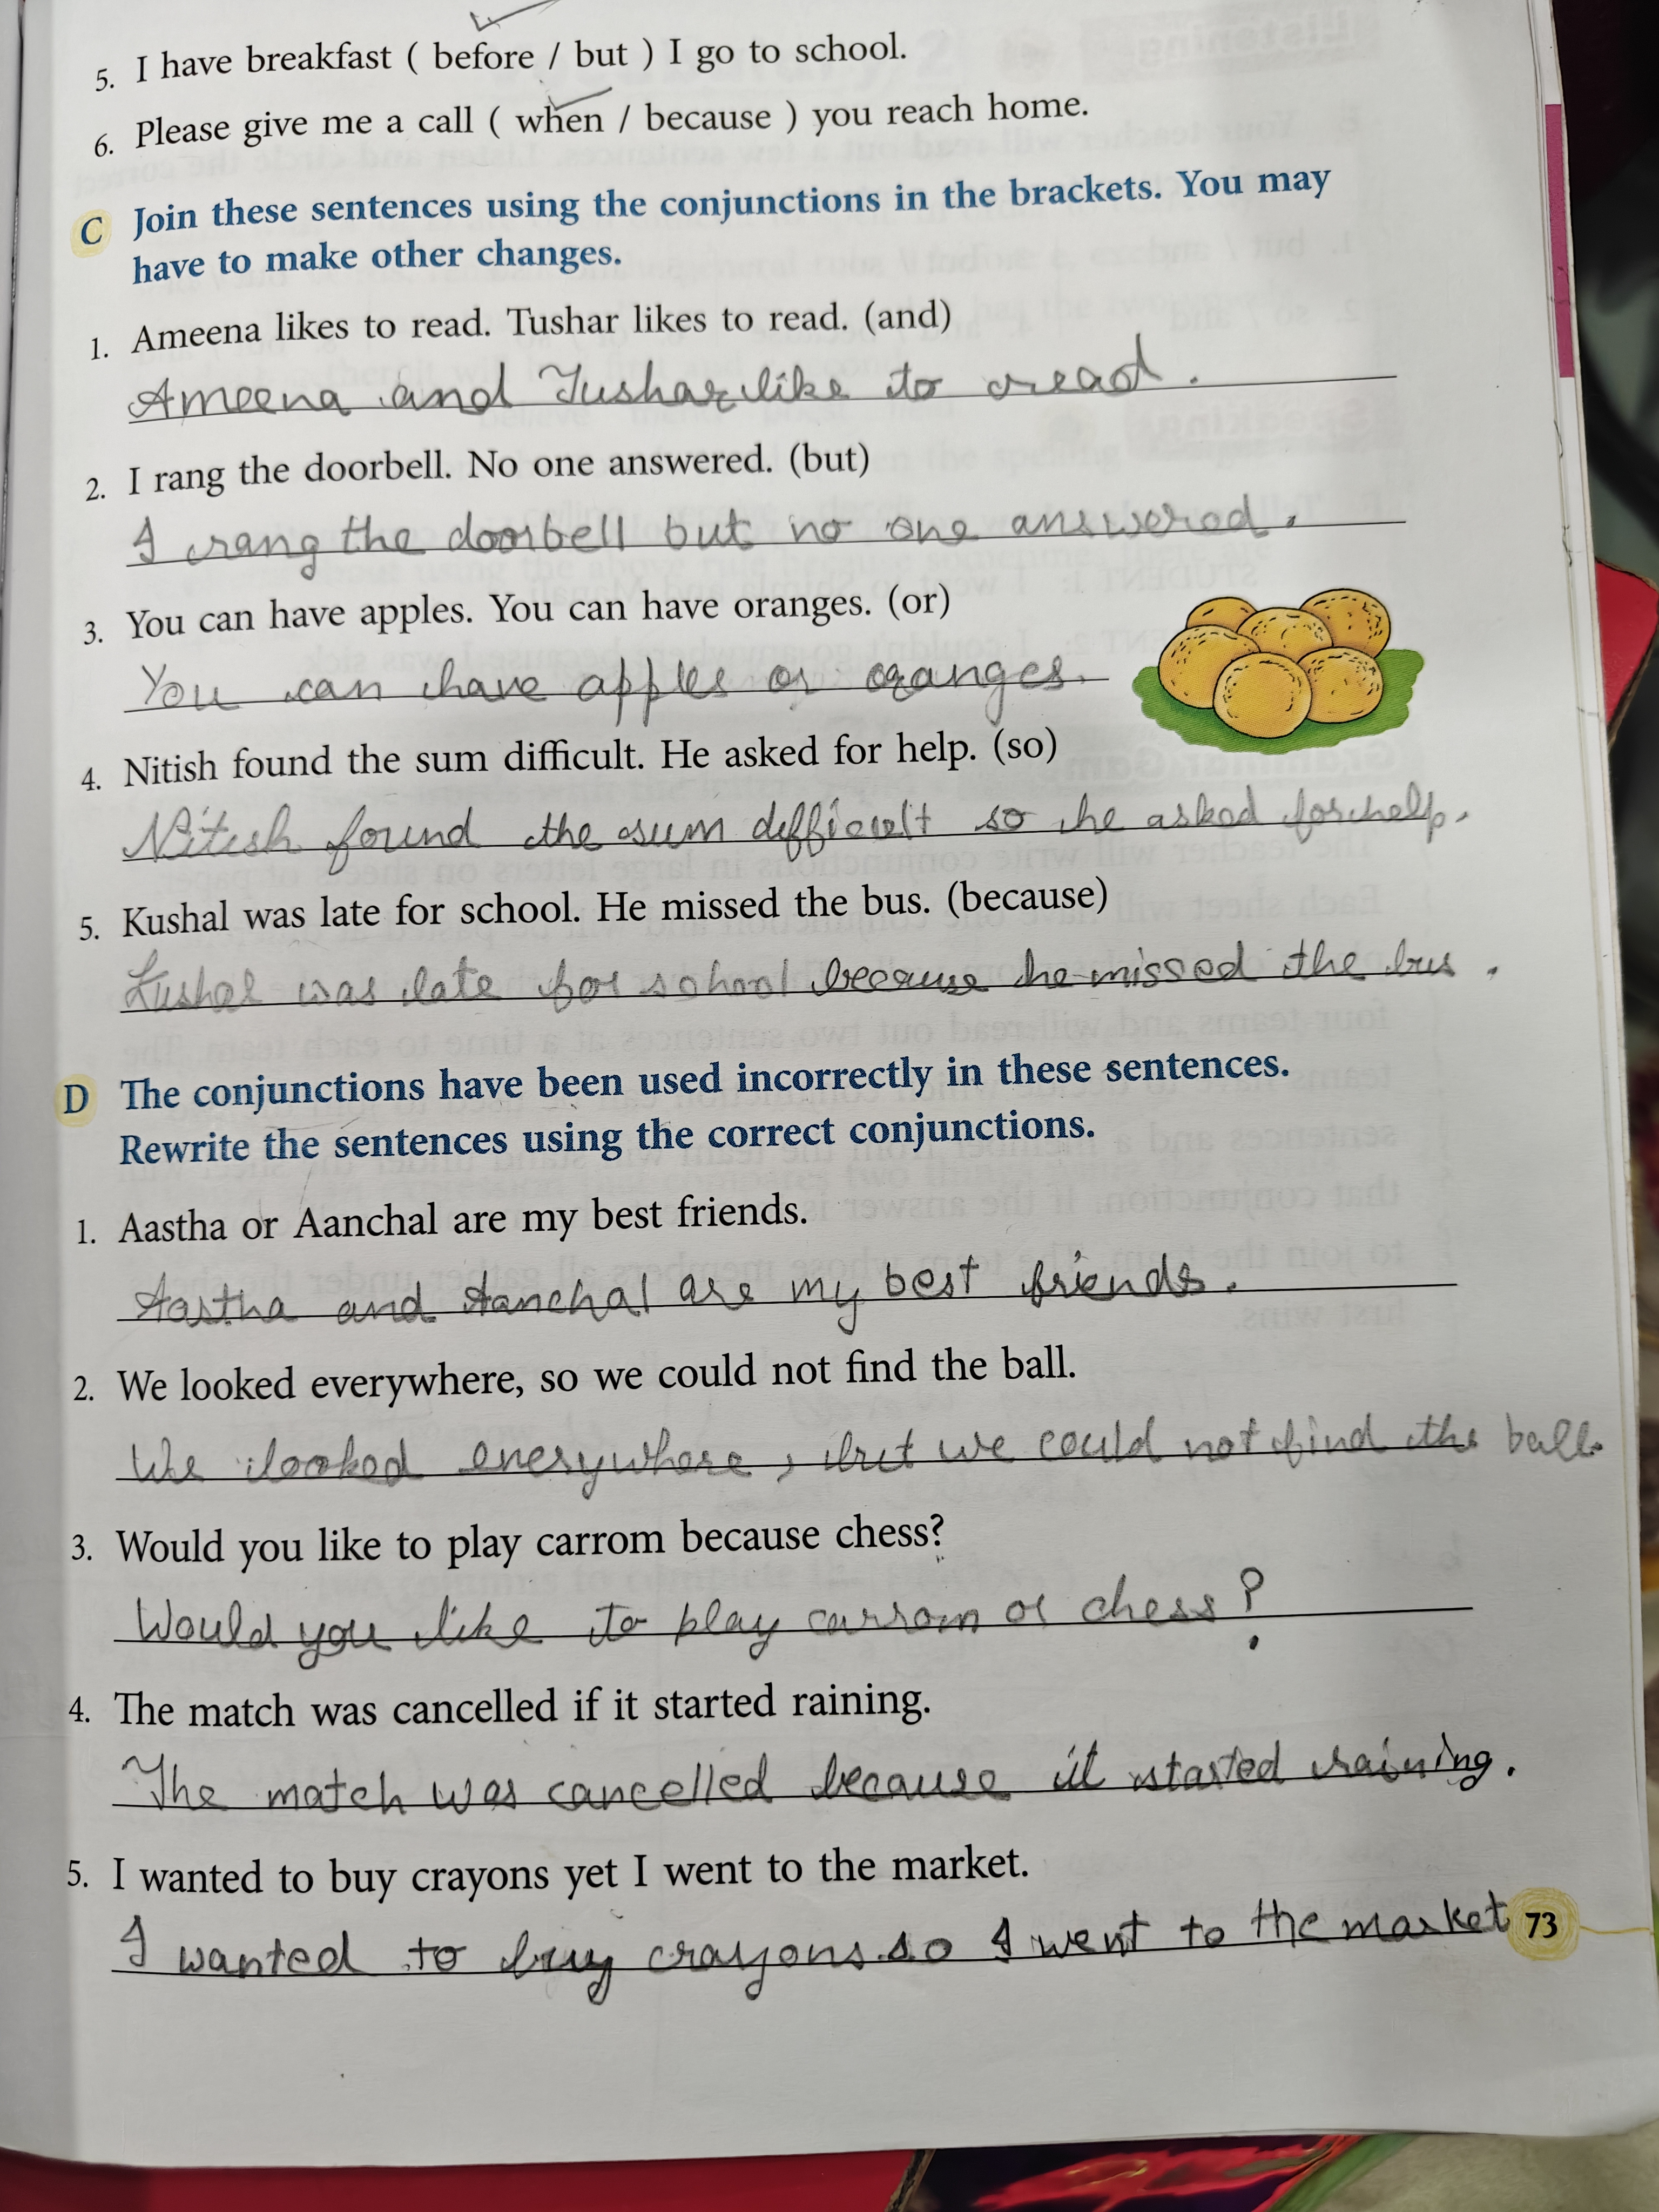 5. I have breakfast ( before / but ) I go to school.
6. Please give me a call ( when / because ) you reach home.
C Join these sentences using the conjunctions in the brackets. You may
have to make other changes.
1. Ameena likes to read. Tushar likes to read. (and)
Ameena and Tushar like to read.
2. I rang the doorbell. No one answered. (but)
I rang the doorbell but no one answered.
3. You can have apples. You can have oranges. (or)
You can have apples or oranges.
4. Nitish found the sum difficult. He asked for help. (so)
Nitish found the sum difficult so he asked for help.
5. Kushal was late for school. He missed the bus. (because)
Kushal was late for school because he missed the bus.
D The conjunctions have been used incorrectly in these sentences.
Rewrite the sentences using the correct conjunctions.
1. Aastha or Aanchal are my best friends.
Aastha and Aanchal are my best friends.
2. We looked everywhere, so we could not find the ball.
We looked everywhere, but we could not find the ball.
3. Would you like to play carrom because chess?
Would you like to play carrom or chess?
4. The match was cancelled if it started raining.
The match was cancelled because it started raining.
5. I wanted to buy crayons yet I went to the market.
I wanted to buy crayons so I went to the market
73